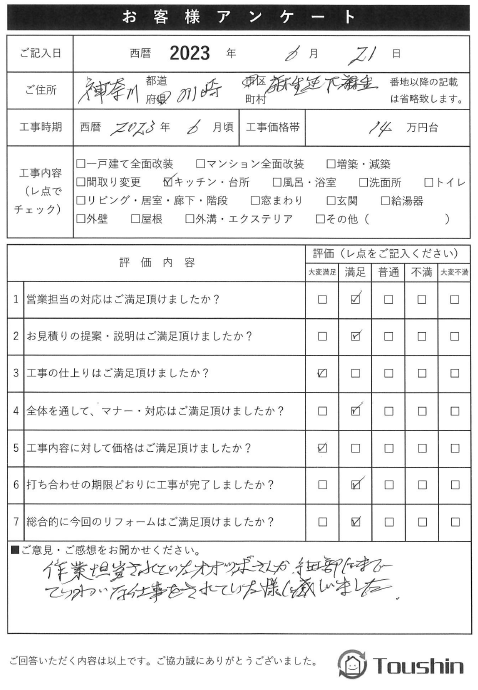 お客様アンケート
ご記入日 西暦 2023 年 6 月 21 日
ご住所 神奈川 都道府県 川崎 市区町村 麻生区下麻生 番地以降の記載は省略致します。
工事時期 西暦 2023 年 6 月頃 工事価格帯 14 万円台
工事内容（レ点でチェック）
□一戸建て全面改装 □マンション全面改装 □増築・減築
□間取り変更 ☑キッチン・台所 □風呂・浴室 □洗面所 □トイレ
□リビング・居室・廊下・階段 □窓まわり □玄関 □給湯器
□外壁 □屋根 □外溝・エクステリア □その他（ ）
評価内容 評価（レ点をご記入ください）
大変満足 満足 普通 不満 大変不満
1 営業担当の対応はご満足頂けましたか？ □ ☑ □ □ □
2 お見積りの提案・説明はご満足頂けましたか？ □ ☑ □ □ □
3 工事の仕上りはご満足頂けましたか？ ☑ □ □ □ □
4 全体を通して、マナー・対応はご満足頂けましたか？ □ ☑ □ □ □
5 工事内容に対して価格はご満足頂けましたか？ ☑ □ □ □ □
6 打ち合わせの期限どおりに工事が完了しましたか？ □ ☑ □ □ □
7 総合的に今回のリフォームはご満足頂けましたか？ □ ☑ □ □ □
■ご意見・ご感想をお聞かせください。
作業担当されていた さんが細部にまで
ていねいな仕事をされていた様に感じました。
ご回答いただく内容は以上です。ご協力誠にありがとうございました。
Toushin